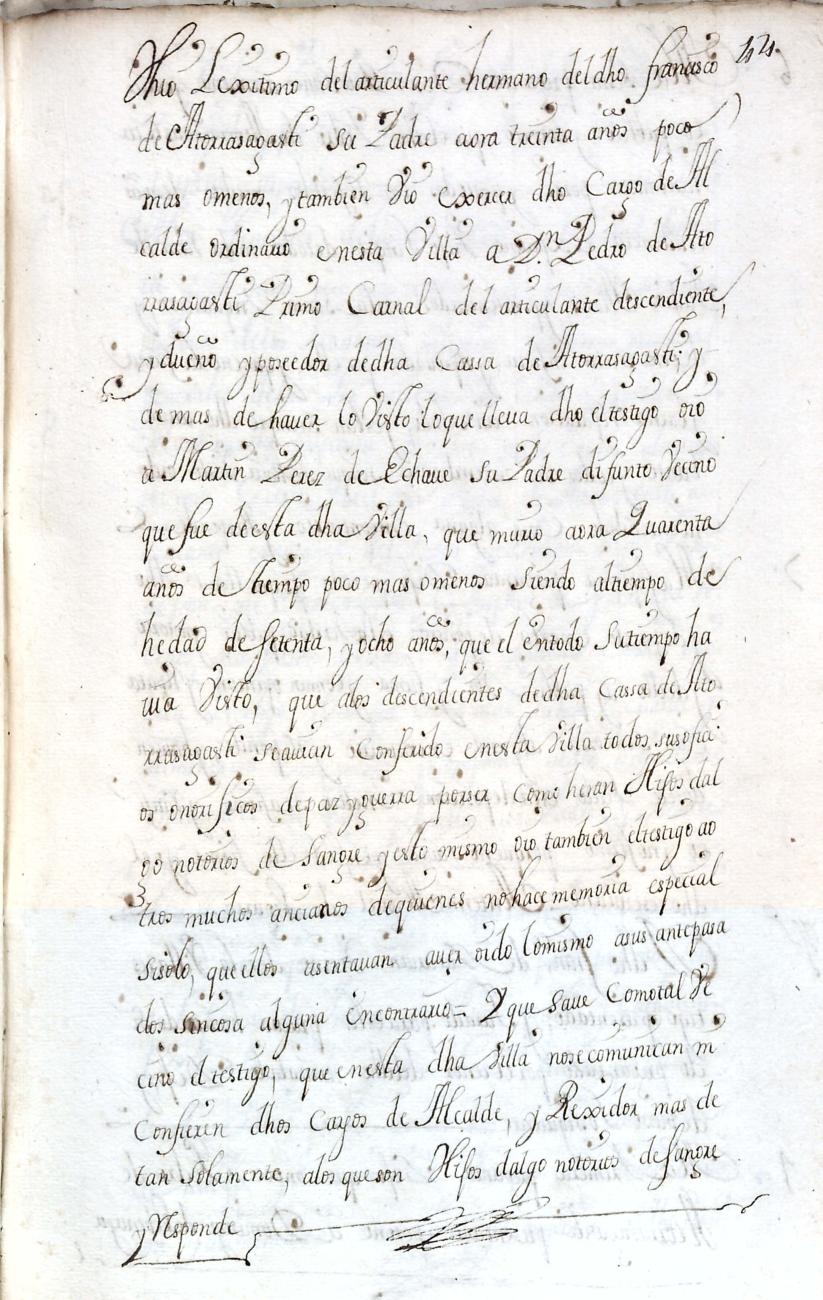 Hijo Lexitimo del articulante hermano del dho francisco
de Atorrasagasti su Padre aora treinta años poco
mas omenos, y tambien Vio exercer dho Cargo de Al
calde ordinario enesta Villa a Dn Pedro de Ato
rrasagasti Primo Carnal del articulante descendiente,
y dueño y poseedor dedha Cassa de Atorrasagasti; y
de mas de haver lo Visto loque lleva dho el testigo oio
a Martin Perez de Echave su Padre difunto Vecino
que fue deesta dha Villa, que murio aora Quarenta
años de tiempo poco mas omenos siendo altiempo de
hedad de setenta, y ocho años, que el entodo sutiempo ha
via Visto, que alos descendientes dedha Cassa de Ato
rrasagasti seavian Conferido enesta Villa todos sus ofiçi
os onorificos depaz yguerra porser Como heran Hijos dal
go notorios de Sangre y esto mismo oio tambien eltestigo ao
tros muchos ancianos dequienes nohace memoria especial
sisolo, que ellos asentavan aver oido lomismo asus antepasa
dos sincosa alguna encontrario = Y que save Comotal Ve
cino el testigo, que enesta dha Villa nosecomunican ni
Confieren dhos Cargos de Alcalde, y Rexidor mas de
tan solamente, alos queson Hijos dalgo notorios deSangre
y Responde